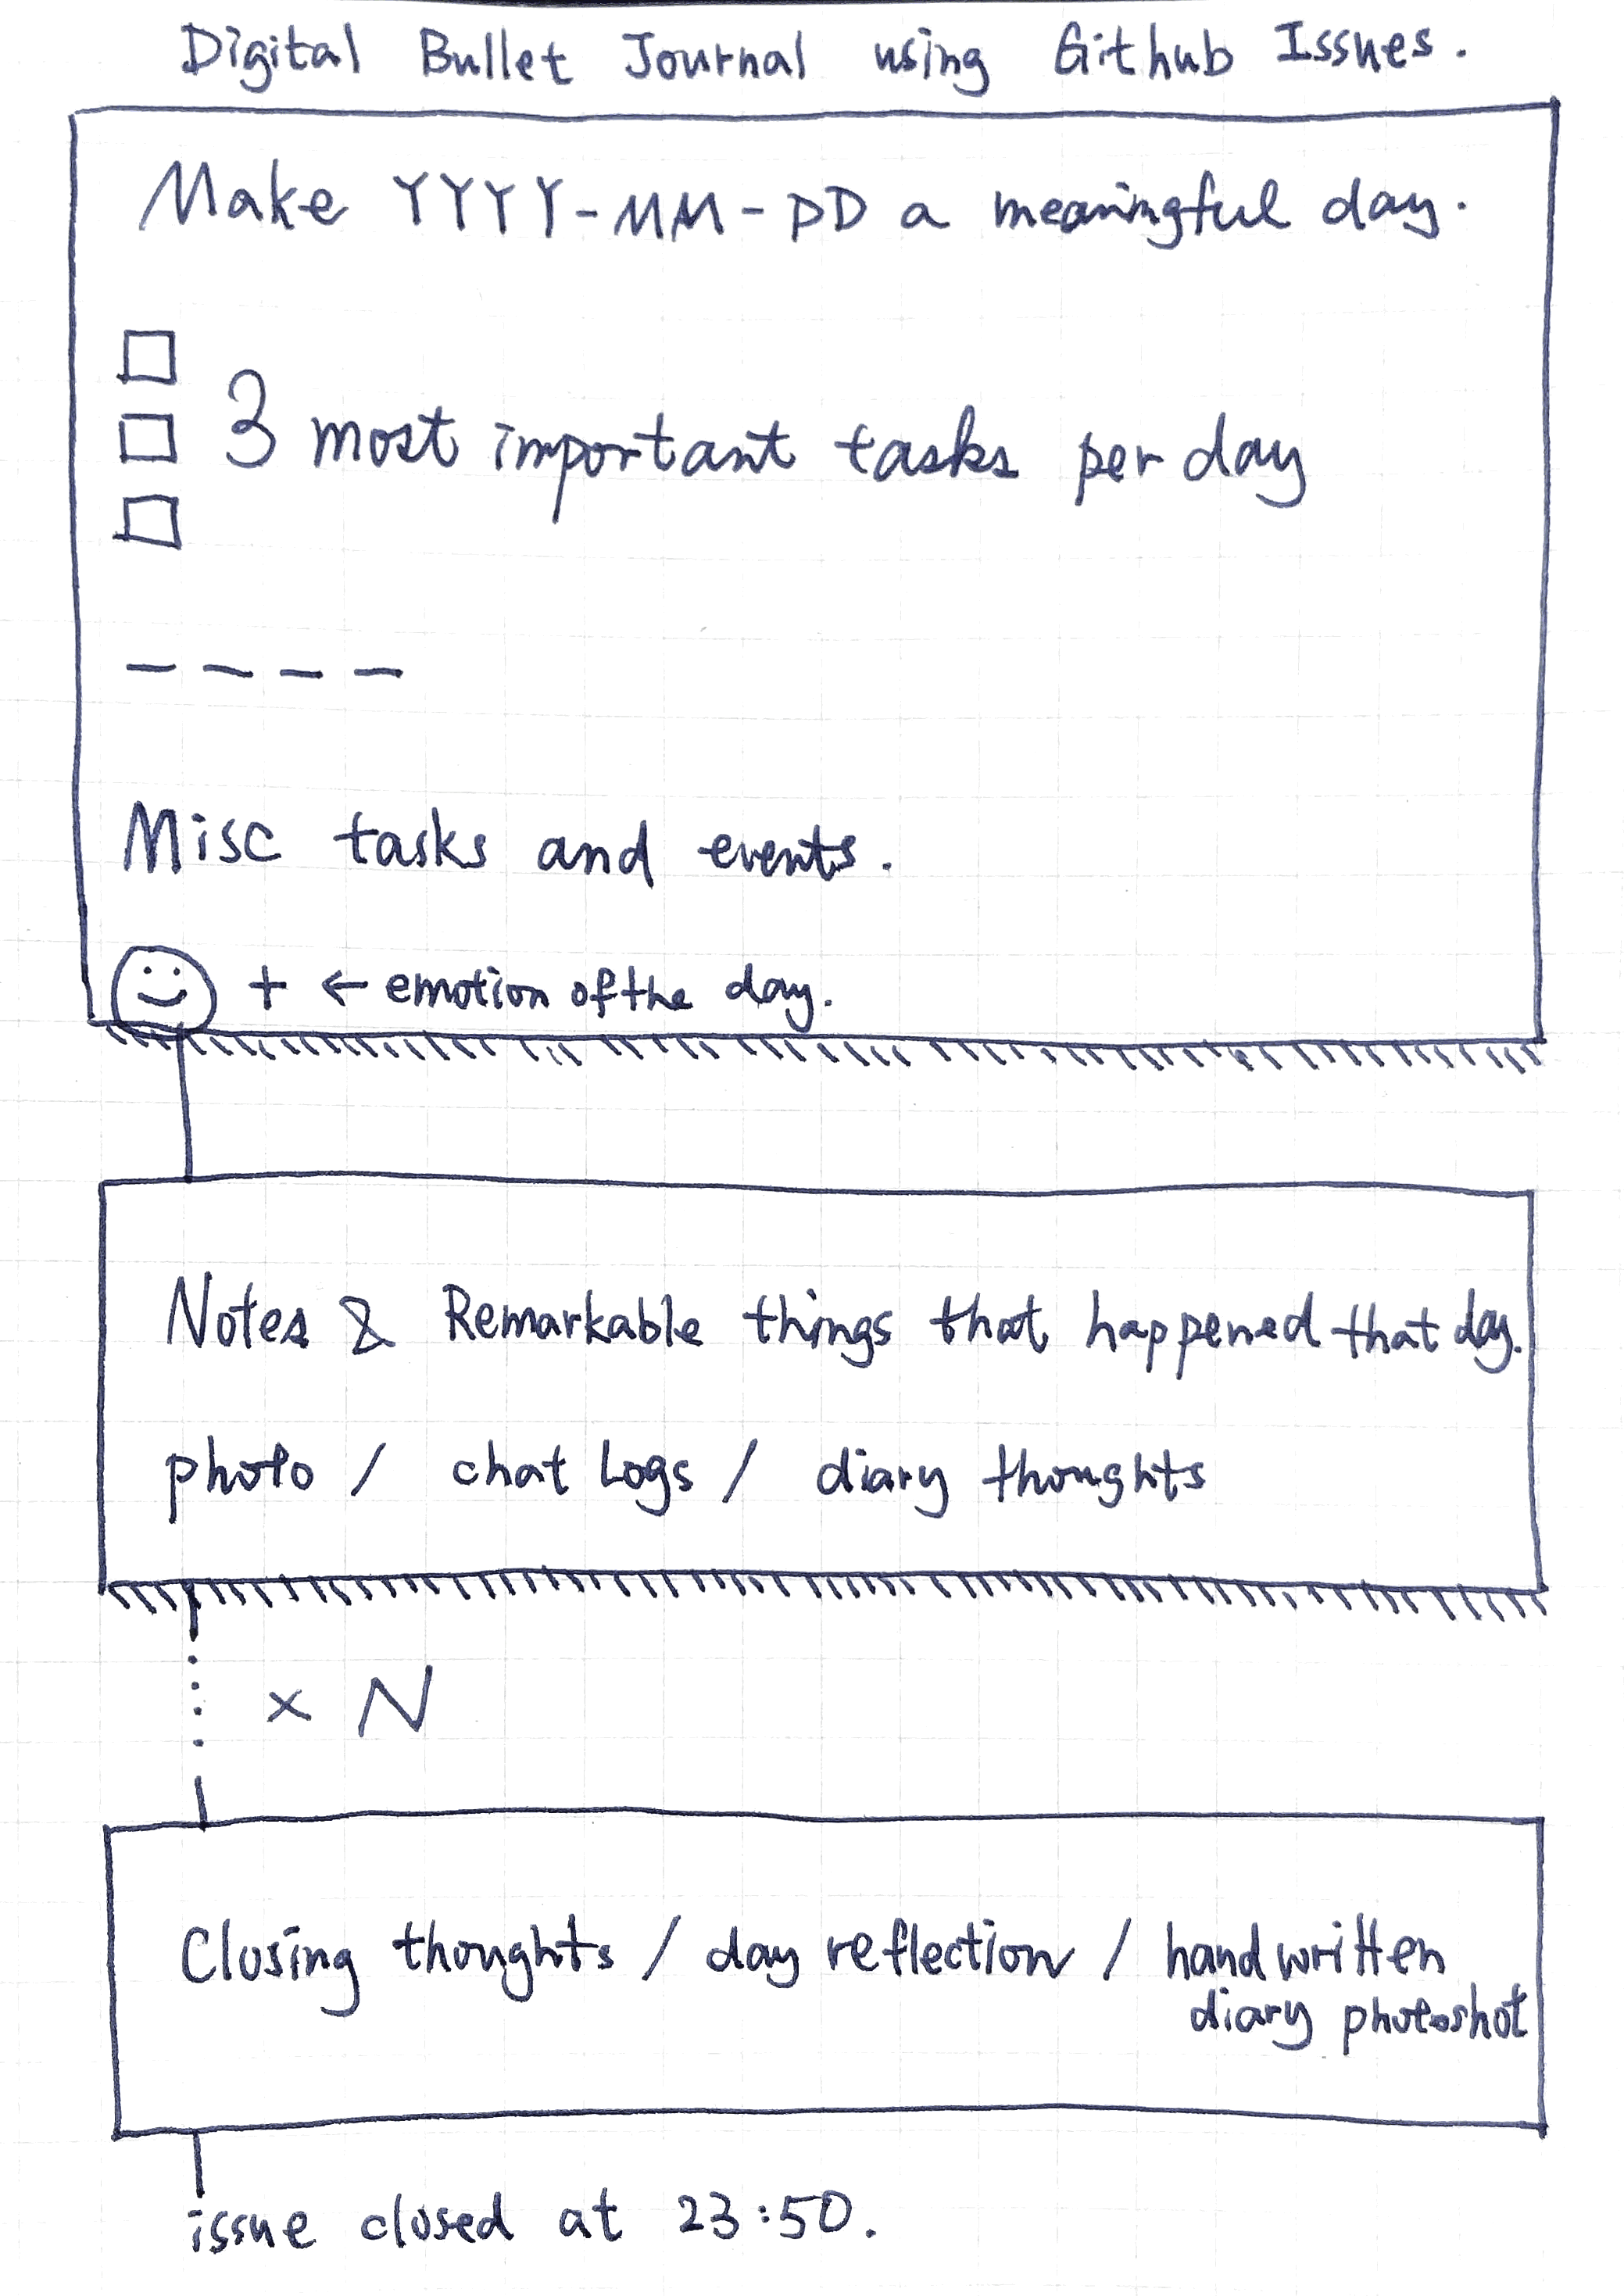 Digital Bullet Journal using Github Issues.
Make YYYY-MM-DD a meaningful day.
3 most important tasks per day
Misc tasks and events.
+ ← emotion of the day.
Notes & Remarkable things that happened that day.
photo / chat Logs / diary thoughts
× N
Closing thoughts / day reflection / handwritten
diary photoshot
issue closed at 23:50.